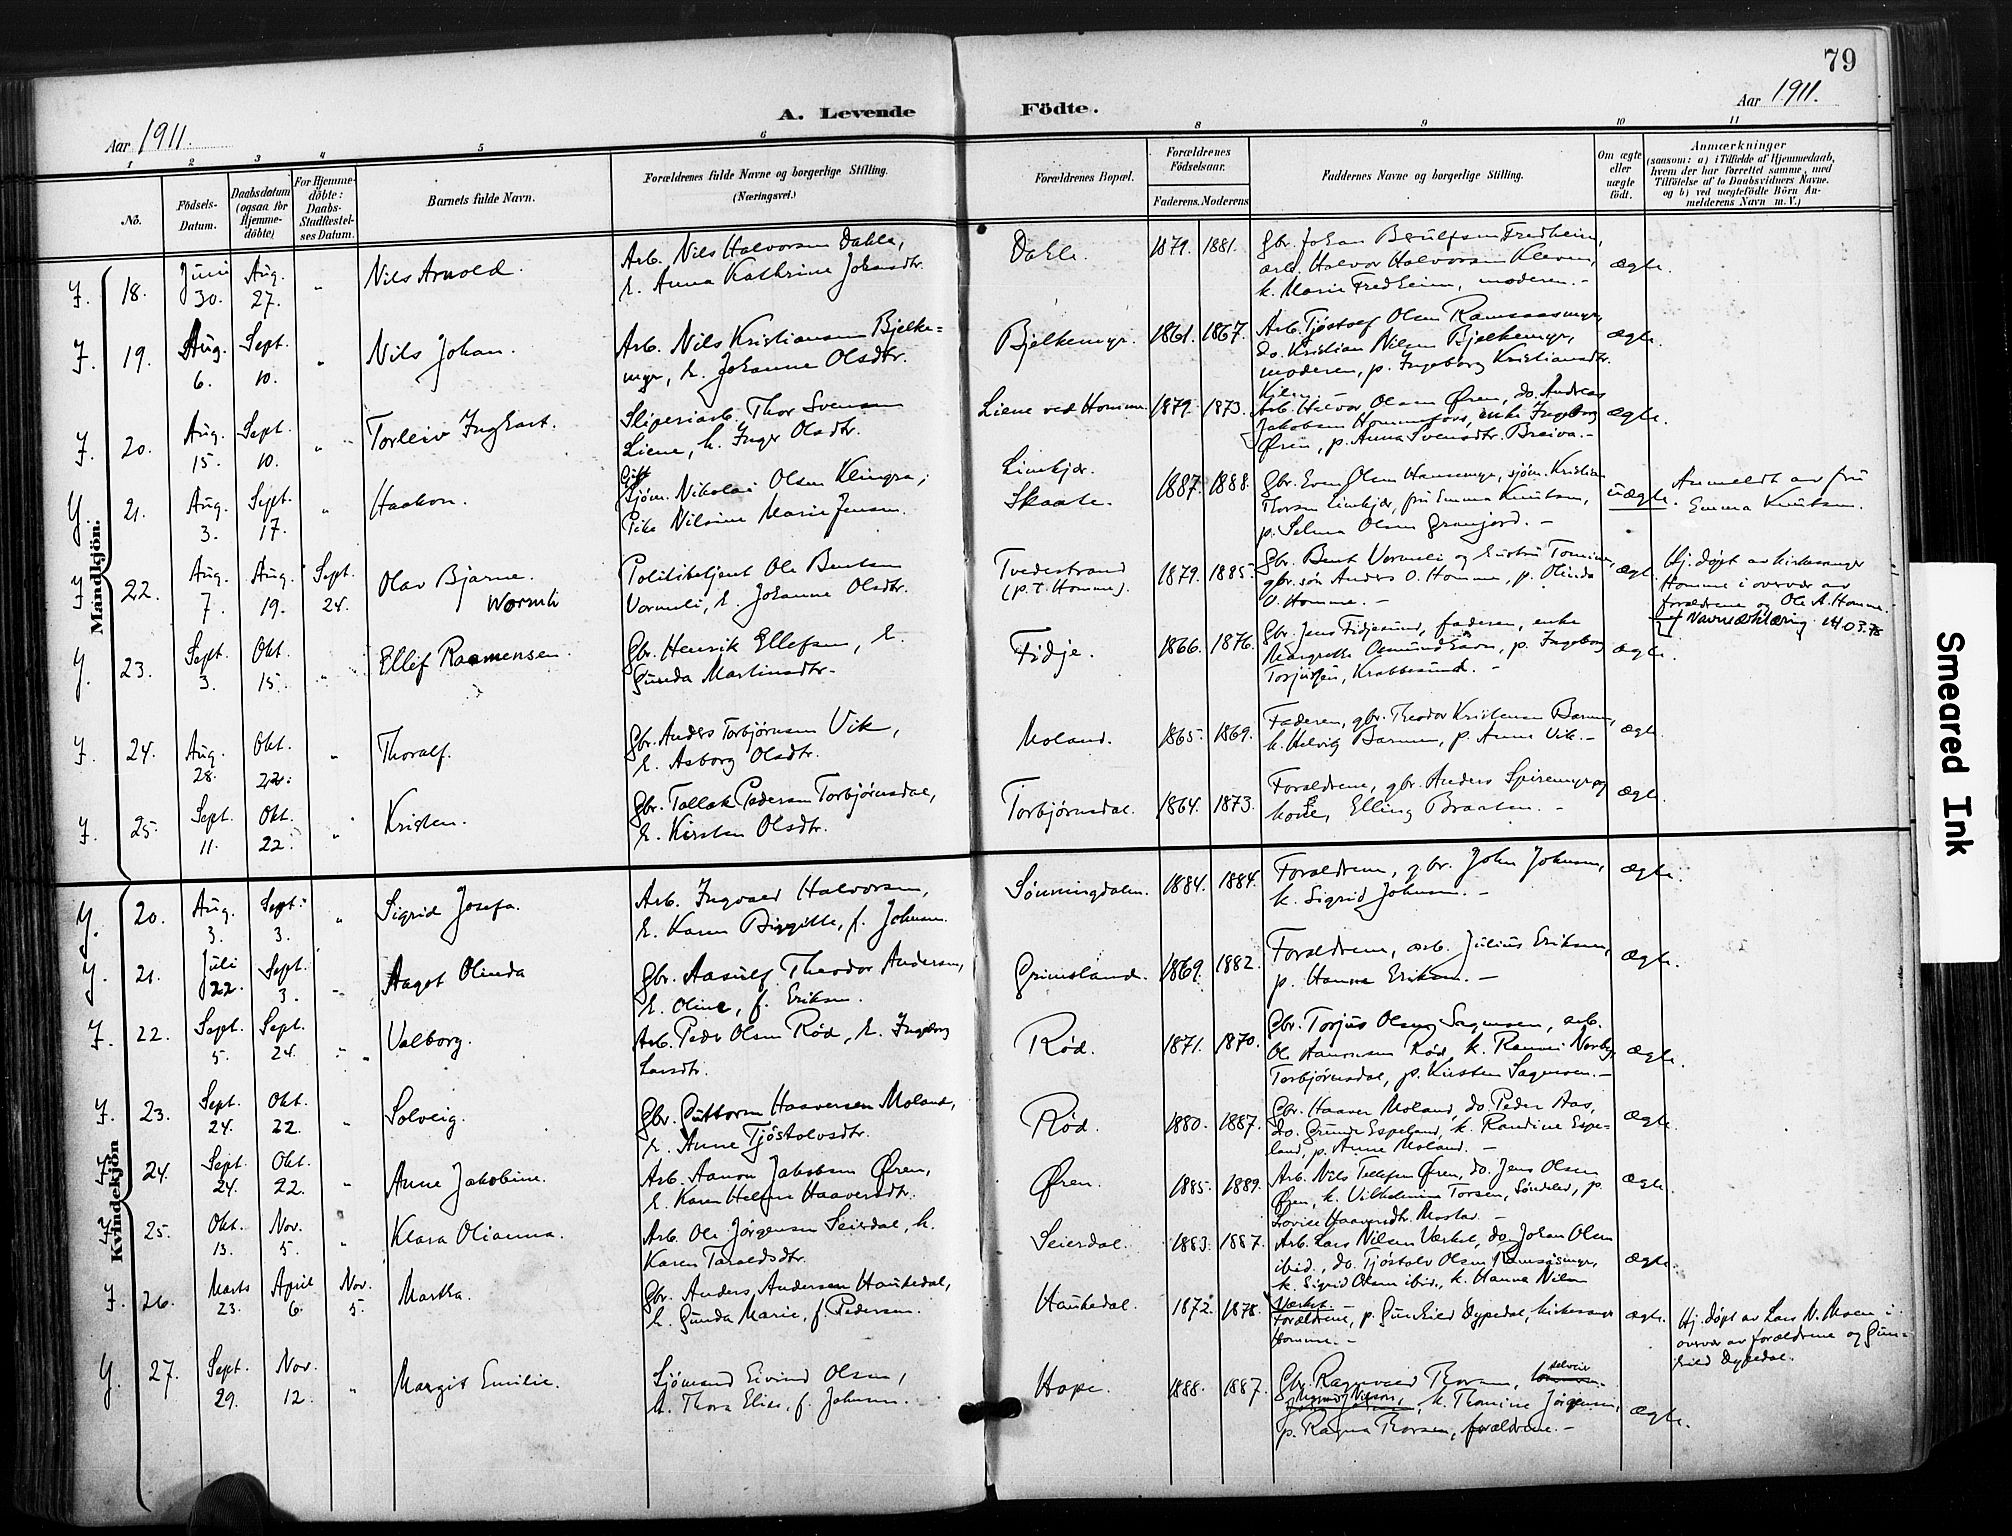 79
Aar 1911.
A. Levende Födte.
Aar 1911.
1 2 3 4 5 6 8 9 10 11
No.
Födsels-Datum.
Daabsdatum (ogsaa for Hjemme-döbte)
For Hjemme-döbte: Daabs-Stadfestel-ses Datum.
Barnets fulde Navn.
Forældrenes fulde Navne og borgerlige Stilling.
(Næringsvei.)
Forældrenes Bopæl.
Forældrenes Födselsaar.
Faderens. Moderens
Faddernes Navne og borgerlige Stilling.
Om ægte eller uægte födt.
Anmærkninger
(saasom: a) i Tilfælde af Hjemmedaab,
hvem der har forrettet samme, med
Tilföielse af to Daabsvidners Navne,
og b) ved uegtefödte Börn An-
melderens Navn m. V.)
Mandkjön.
18. Juni 30. Aug. 27. " Nils Arnold.
Arb. Nils Halvorsen Dahle,
k. Anna Kathrine Johansdtr.
Dahle. 1879. 1881.
gbr. Johan Fredheim,
arb. Halvor Halvorsen Kleven,
k. Marie Fredheim, moderen. –
ægte.
19. Aug. 6. Sept. 10. " Nils Johan.
Arb. Nils Kristiansen Bjelke=
myr, k. Johanne Olsdtr.
Bjelkemyr. 1861. 1867.
Arb. Tjøstolf Olsen Ramsaasmyr,
do. Kristian Nilsen Bjelkemyr,
moderen, p. Ingeborg Kristiansdtr.
ægte.
20. Aug. 15. Sept. 10. " Torleiv Ingvart.
Sliperiarb. Thor Svensen
Liene, k. Inger Olsdtr.
Liene ved Homme. 1879. 1873.
Arb. Halvor Olsen Øren, do. Andreas
Jakobsen Hommefoss, enke Ingeborg
Øren, p. Anna Svensdtr. Breiva. –
ægte.
21. Aug. 3. Sept. 17. " Haakon.
Gift
Sjøm. Nikolai Olsen Klingra;
Pike Nilsine Marie Jensen.
Limkjær.
Skaate. 1887. 1888.
gbr. Even Olsen Hansemyr, sjøm. Kristian
Thorsen Limkjær, fru Emma Knutsen,
p. Selma Olsen Granfjord. –
uægte.
Anmeldt av fru
Emma Knutsen.
22. Aug. 7. Aug. 19. Sept. 24. Olav Bjarne.
Wormli
Politibetjent Ole Bentsen
Vormeli, k. Johanne Olsdtr.
Tvedestrand
(p.T. Homme). 1879. 1885.
gbr. Bent Vormeli og hustru Tomine,
gbr.søn Anders O. Homme, p. Olinda
O. Homme. –
ægte.
Hj. døpt av kirkesanger
Homme i overvær av
forældrene og Ole A. Homme.
Navneerklæring 14.03.78
23. Sept. 3. Okt. 15. " Ellef Rasmensen.
Gbr. Henrik Ellefsen, k.
Gunda Martinsdtr.
Fidje. 1866. 1876.
gbr. Jens Fidjesund, faderen, enke
Margrethe, p. Ingeborg
Torjusen, Krabbesund. –
ægte.
24. Aug. 28. Okt. 22. " Thoralf.
Gbr. Anders Torbjørnsen Vik,
k. Asborg Olsdtr.
Moland. 1865. 1869.
Faderen, gbr. Theodor Kristensen Barmen,
k. Helvig Barmen, p. Anne Vik. –
ægte.
25. Sept. 11. Okt. 22. " Kristen.
Gbr. Tallak Pedersen Torbjørnsdal,
k. Kirsten Olsdtr.
Torbjørnsdal. 1864. 1873.
Forældrene, gbr. Anders Spiremyr og
kone, Elling Braaten. –
ægte.
Kvindekjön
20. Aug. 3. Sept. 3. " Sigrid Josefa.
Arb. Ingvald Halvorsen,
k. Karen Birgitte, f. Johnsen.
Sønningdalen. 1884. 1884.
Forældrene, gbr. John Johnsen,
k. Sigrid Johnsen. –
ægte.
21. Juli 22. Sept. 3. " Aagot Olinda
Gbr. Aasulf Theodor Andersen,
k. Oline, f. Eriksen.
Grimsland. 1869. 1882.
Forældrene, arb. Julius Eriksen,
p. Hanna Eriksen. –
ægte.
22. Sept. 5. Sept. 24. " Valborg.
Arb. Peder Olsen Rød, k. Ingeborg
Larsdtr.
Rød. 1871. 1870.
Gbr. Torjus Olsen Sagenseen, arb.
Ole Aanonsen Rød, k.
Torbjørnsdal, p. Kirsten Sagenseen. –
ægte.
23. Sept. 24. Okt. 22. " Solveig.
Gbr. Guttorm Haaversen Moland,
k. Anne Tjøstolvsdtr.
Rød. 1880. 1887.
Gbr. Haaver Moland, do. Peder Aas,
do. Gunde Espeland, k. Randine Espe-
land, p. Anne Moland. –
ægte.
24. Sept. 24. Okt. 22. " Anne Jakobine.
Arb. Aanon Jakobsen Øren,
k. Karen Helene Haaversdtr.
Øren. 1885. 1889.
Arb. Nils Tellefsen Øren, do. Jens Olsen
Øren, k. Vilhelmine Torsen, Søndeled, p.
Lovise Haaversdtr. Mostad. –
ægte.
25. Okt. 13. Nov. 5. " Klara Olianna.
Arb. Ole Jørgensen Seierdal, k.
Karen Taraldsdtr.
Seierdal. 1883. 1887.
Arb. Lars Nilsen Værket, do. Johan Olsen
ibid., do. Tjøstolv Olsen Ramsåsmyr,
k. Sigrid Olsen ibid., k. Hanna Nilsen
Værket. –
ægte.
26. Marts 23. April 6. Nov. 5. Martha.
Gbr. Anders Andersen Haukedal,
k. Gunda Marie, f. Pedersen.
Haukedal. 1872. 1878.
Forældrene, p. Gunhild Dypedal, kirkesanger
Homme. –
ægte.
Hj. døpt av Lars N. Moen i
overvær av forældrene og Gun-
hild Dypedal.
27. Sept. 29. Nov. 12. " Margit Emilie.
Sjømand Eivind Olsen,
k. Thora Elise, f. Johnsen.
Hope. 1888. 1887.
Gbr. Ragnvald Thorsen,
k. Thomine Jörgensen,
p. Ragna Thorsen, forældrene. –
ægte.
Smeared Ink